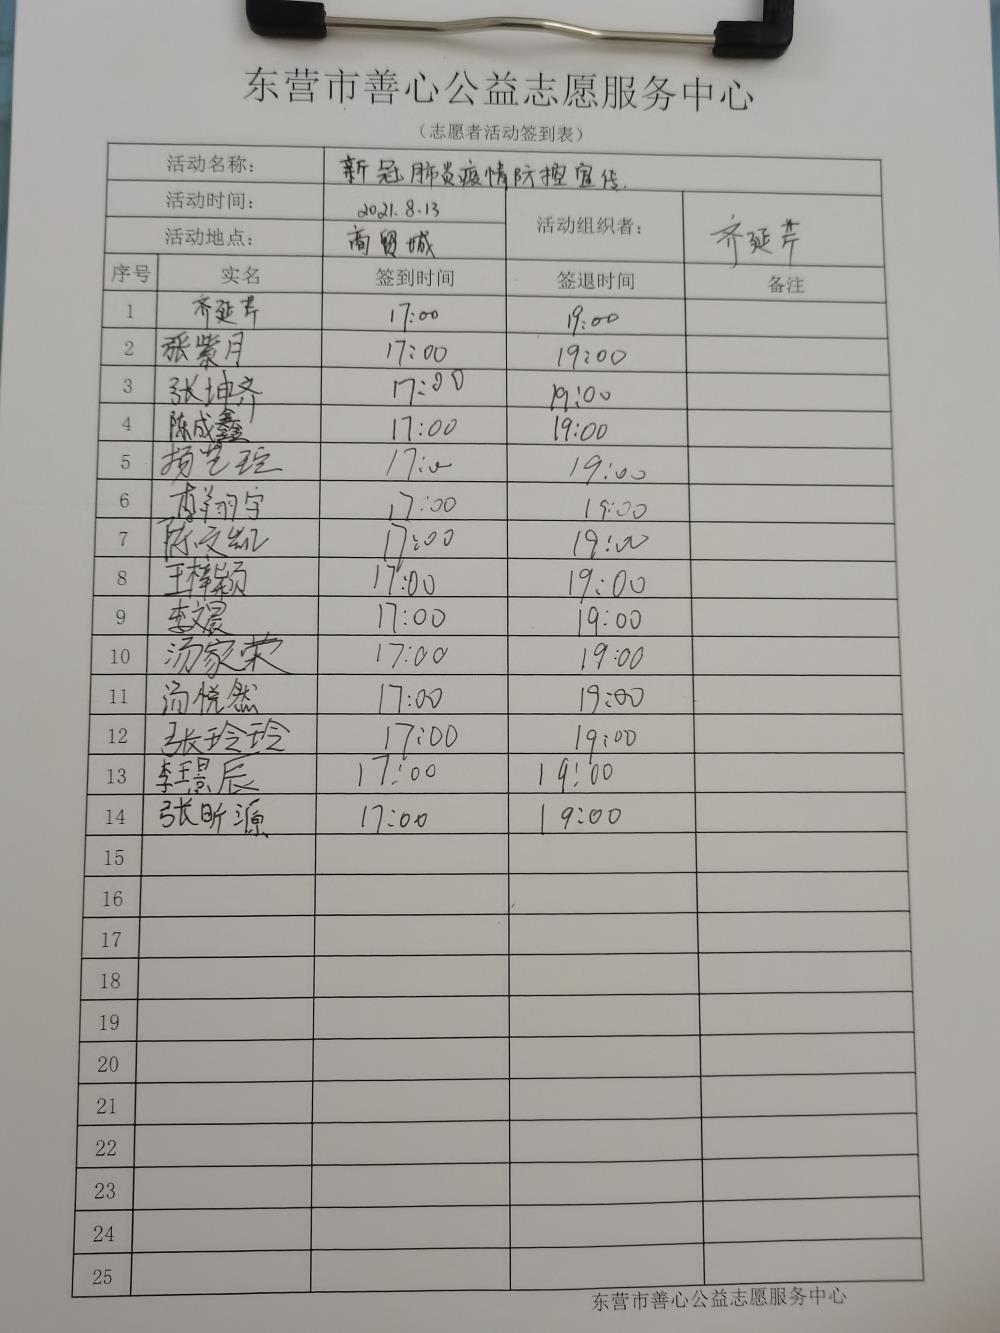 东营市善心公益志愿服务中心
（志愿者活动签到表）
活动名称： 新冠肺炎疫情防控宣传.
活动时间： 2021.8.13 活动组织者： 齐延芹
活动地点： 商贸城
序号 实名 签到时间 签退时间 备注
1 齐延芹 17:00 19:00
2 张紫月 17:00 19:00
3 张坤齐 17:00 19:00
4 陈成鑫 17:00 19:00
5 杨艺 17:00 19:00
6 李翔宇 17:00 19:00
7 陈文凯 17:00 19:00
8 王梓颖 17:00 19:00
9 李文晨 17:00 19:00
10 汤家荣 17:00 19:00
11 汤悦然 17:00 19:00
12 张玲玲 17:00 19:00
13 李璟辰 17:00 19:00
14 张昕源 17:00 19:00
15
16
17
18
19
20
21
22
23
24
25
东营市善心公益志愿服务中心